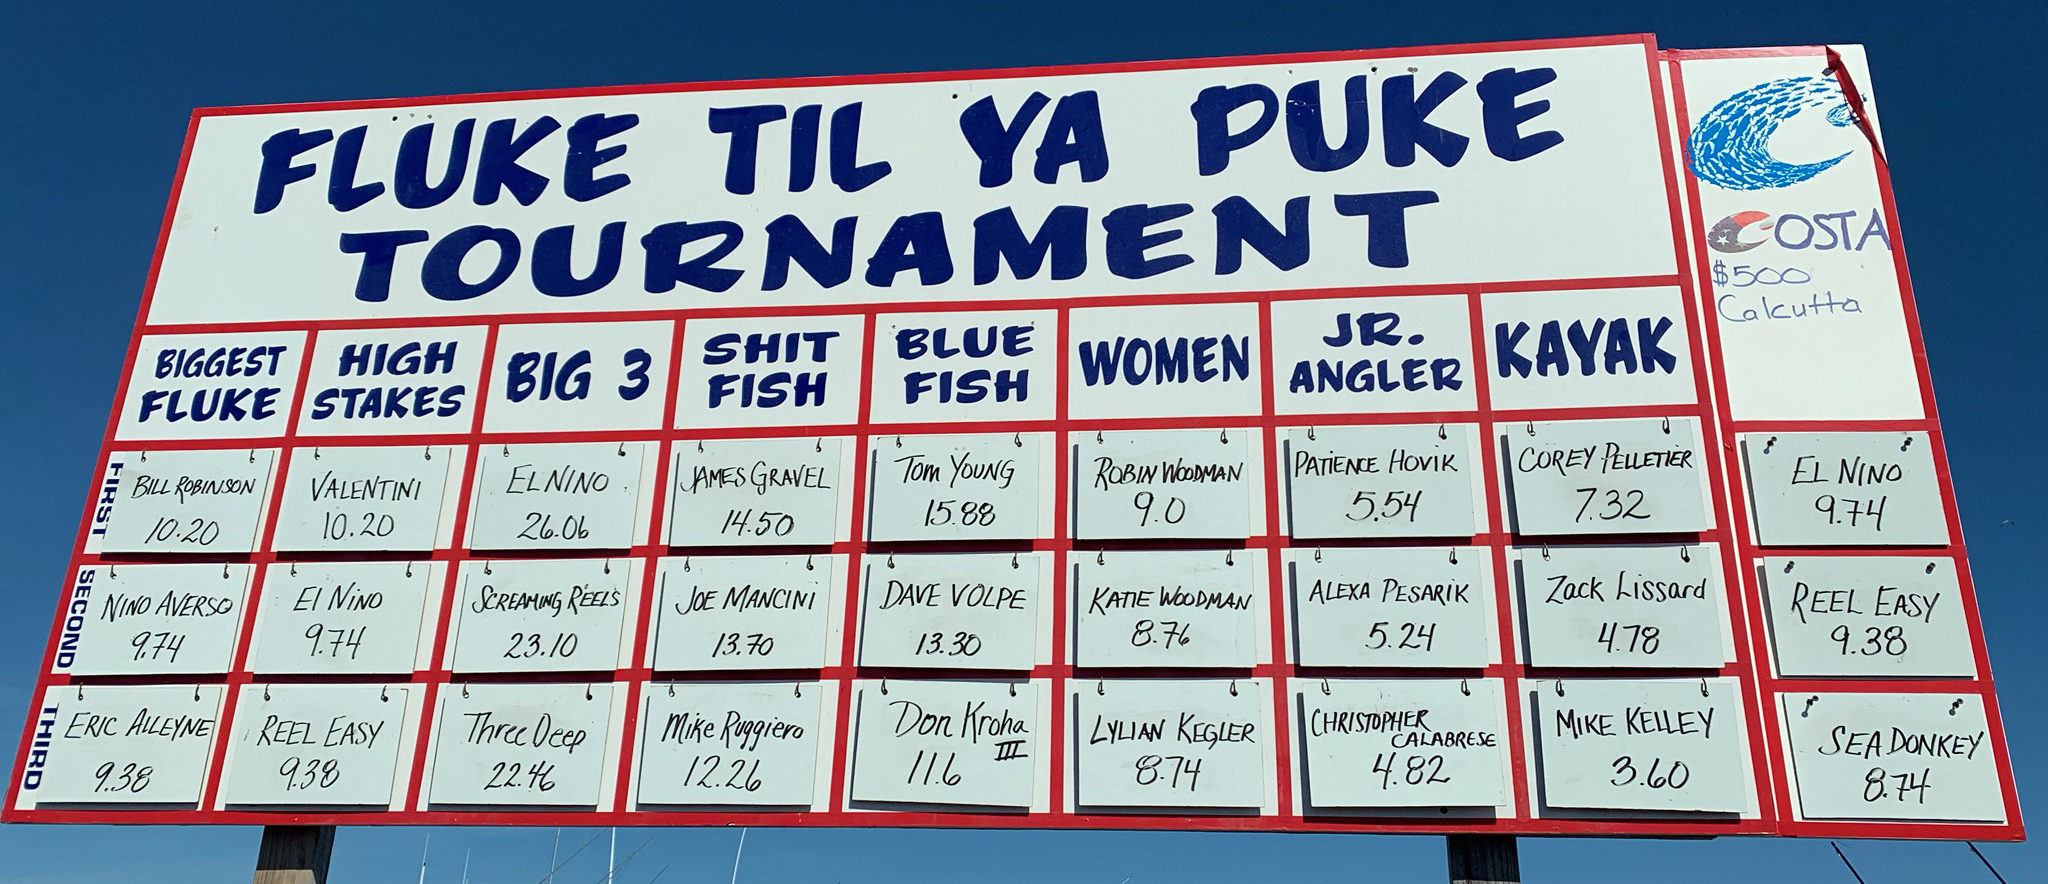 FLUKE TIL YA PUKE
TOURNAMENT
COSTA
$500
Calcutta
BIGGEST
FLUKE
HIGH
STAKES
BIG 3
SHIT
FISH
BLUE
FISH
WOMEN
JR.
ANGLER
KAYAK
FIRST
BILL ROBINSON
10.20
VALENTINI
10.20
EL NINO
26.06
JAMES GRAVEL
14.50
TOM YOUNG
15.88
ROBIN WOODMAN
9.0
PATIENCE HOVIK
5.54
COREY PELLETIER
7.32
EL NINO
9.74
SECOND
NINO AVERSO
9.74
El Nino
9.74
SCREAMING REELS
23.10
JOE MANCINI
13.70
DAVE VOLPE
13.30
KATIE WOODMAN
8.76
ALEXA PESARIK
5.24
Zack Lissard
4.78
REEL EASY
9.38
THIRD
ERIC ALLEYNE
9.38
REEL EASY
9.38
Three Deep
22.46
Mike Ruggiero
12.26
Don Kroha
III
11.6
LYLIAN KEGLER
8.74
CHRISTOPHER
CALABRESE
4.82
MIKE KELLEY
3.60
SEA DONKEY
8.74